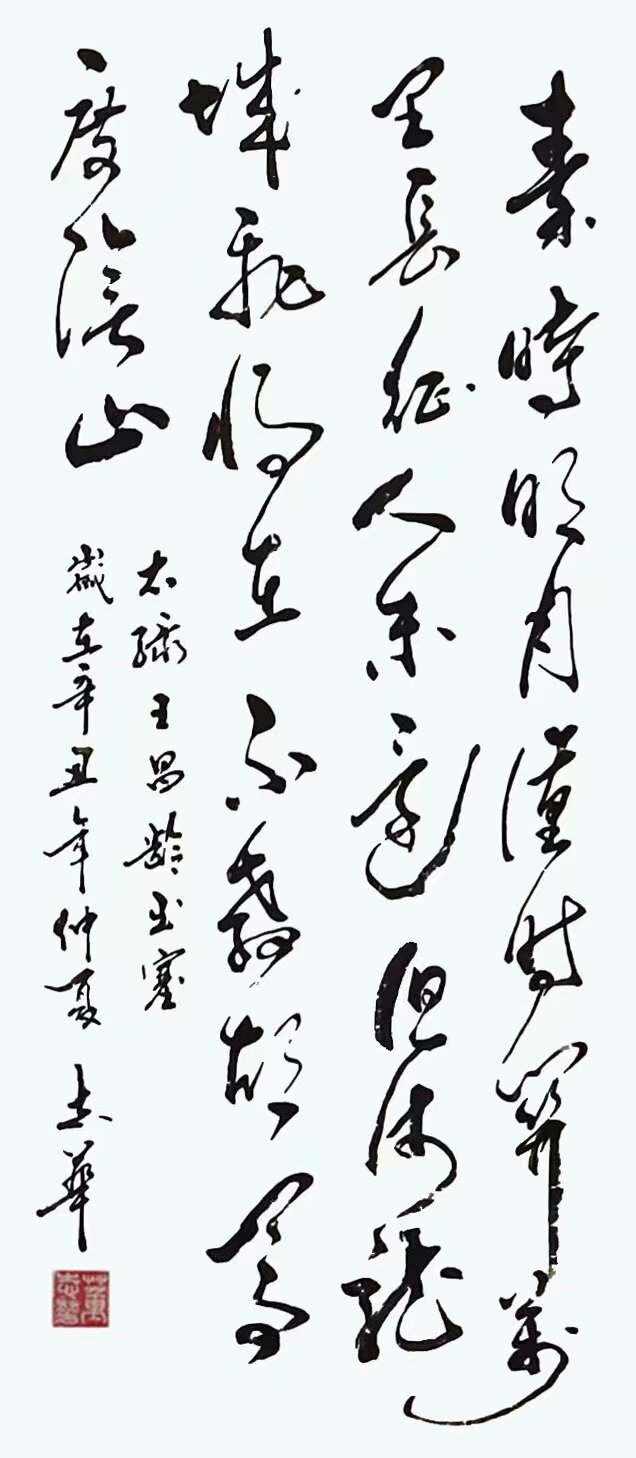 秦時明月漢時關萬
里長征人未還但使龍
城飛將在不教胡馬
度陰山
右録王昌齡出塞
歲在辛丑年仲夏 志華